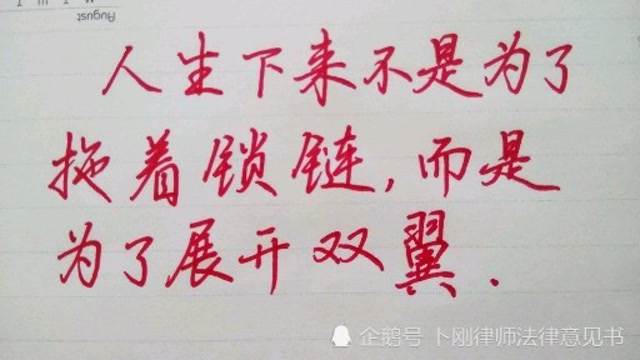 August
人生下来不是为了
拖着锁链,而是
为了展开双翼.
企鹅号 卜刚律师法律意见书